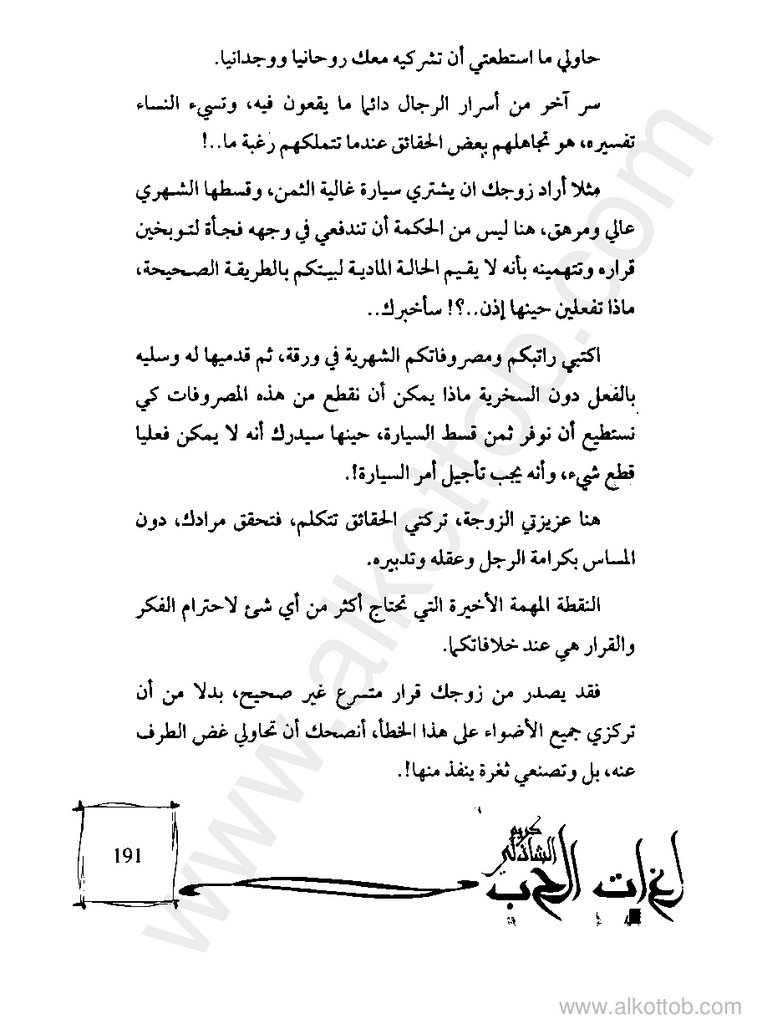 حاولي ما استطعتي أن تشركيه معك روحانيا ووجدانيا.
سر آخر من أسرار الرجال دائما ما يقعون فيه، وتسيء النساء
تفسيره، هو تجاهلهم بعض الحقائق عندما تتملكهم رغبة ما..!
مثلا أراد زوجك ان يشتري سيارة غالية الثمن، وقسطها الشهري
عالي ومرهق، هنا ليس من الحكمة أن تندفعي في وجهه فجأة لتوبخين
قراره وتتهمينه بأنه لا يقيم الحالة المادية لبيتكم بالطريقة الصحيحة،
ماذا تفعلين حينها إذن..؟! سأخبرك..
اكتبي راتبكم ومصروفاتكم الشهرية في ورقة، ثم قدميها له وسليه
بالفعل دون السخرية ماذا يمكن أن نقطع من هذه المصروفات كي
نستطيع أن نوفر ثمن قسط السيارة، حينها سيدرك أنه لا يمكن فعليا
قطع شيء، وأنه يجب تأجيل أمر السيارة!.
هنا عزيزتي الزوجة، تركتي الحقائق تتكلم، فتحقق مرادك، دون
المساس بكرامة الرجل وعقله وتدبيره.
النقطة المهمة الأخيرة التي تحتاج أكثر من أي شئ لاحترام الفكر
والقرار هي عند خلافاتكما.
فقد يصدر من زوجك قرار متسرع غير صحيح، بدلا من أن
تركزي جميع الأضواء على هذا الخطأ، أنصحك أن تحاولي غض الطرف
عنه، بل وتصنعي ثغرة ينفذ منها!.
كريم
الشاذلي
لغات الحب
191
www.alkottob.com
www.alkottob.com